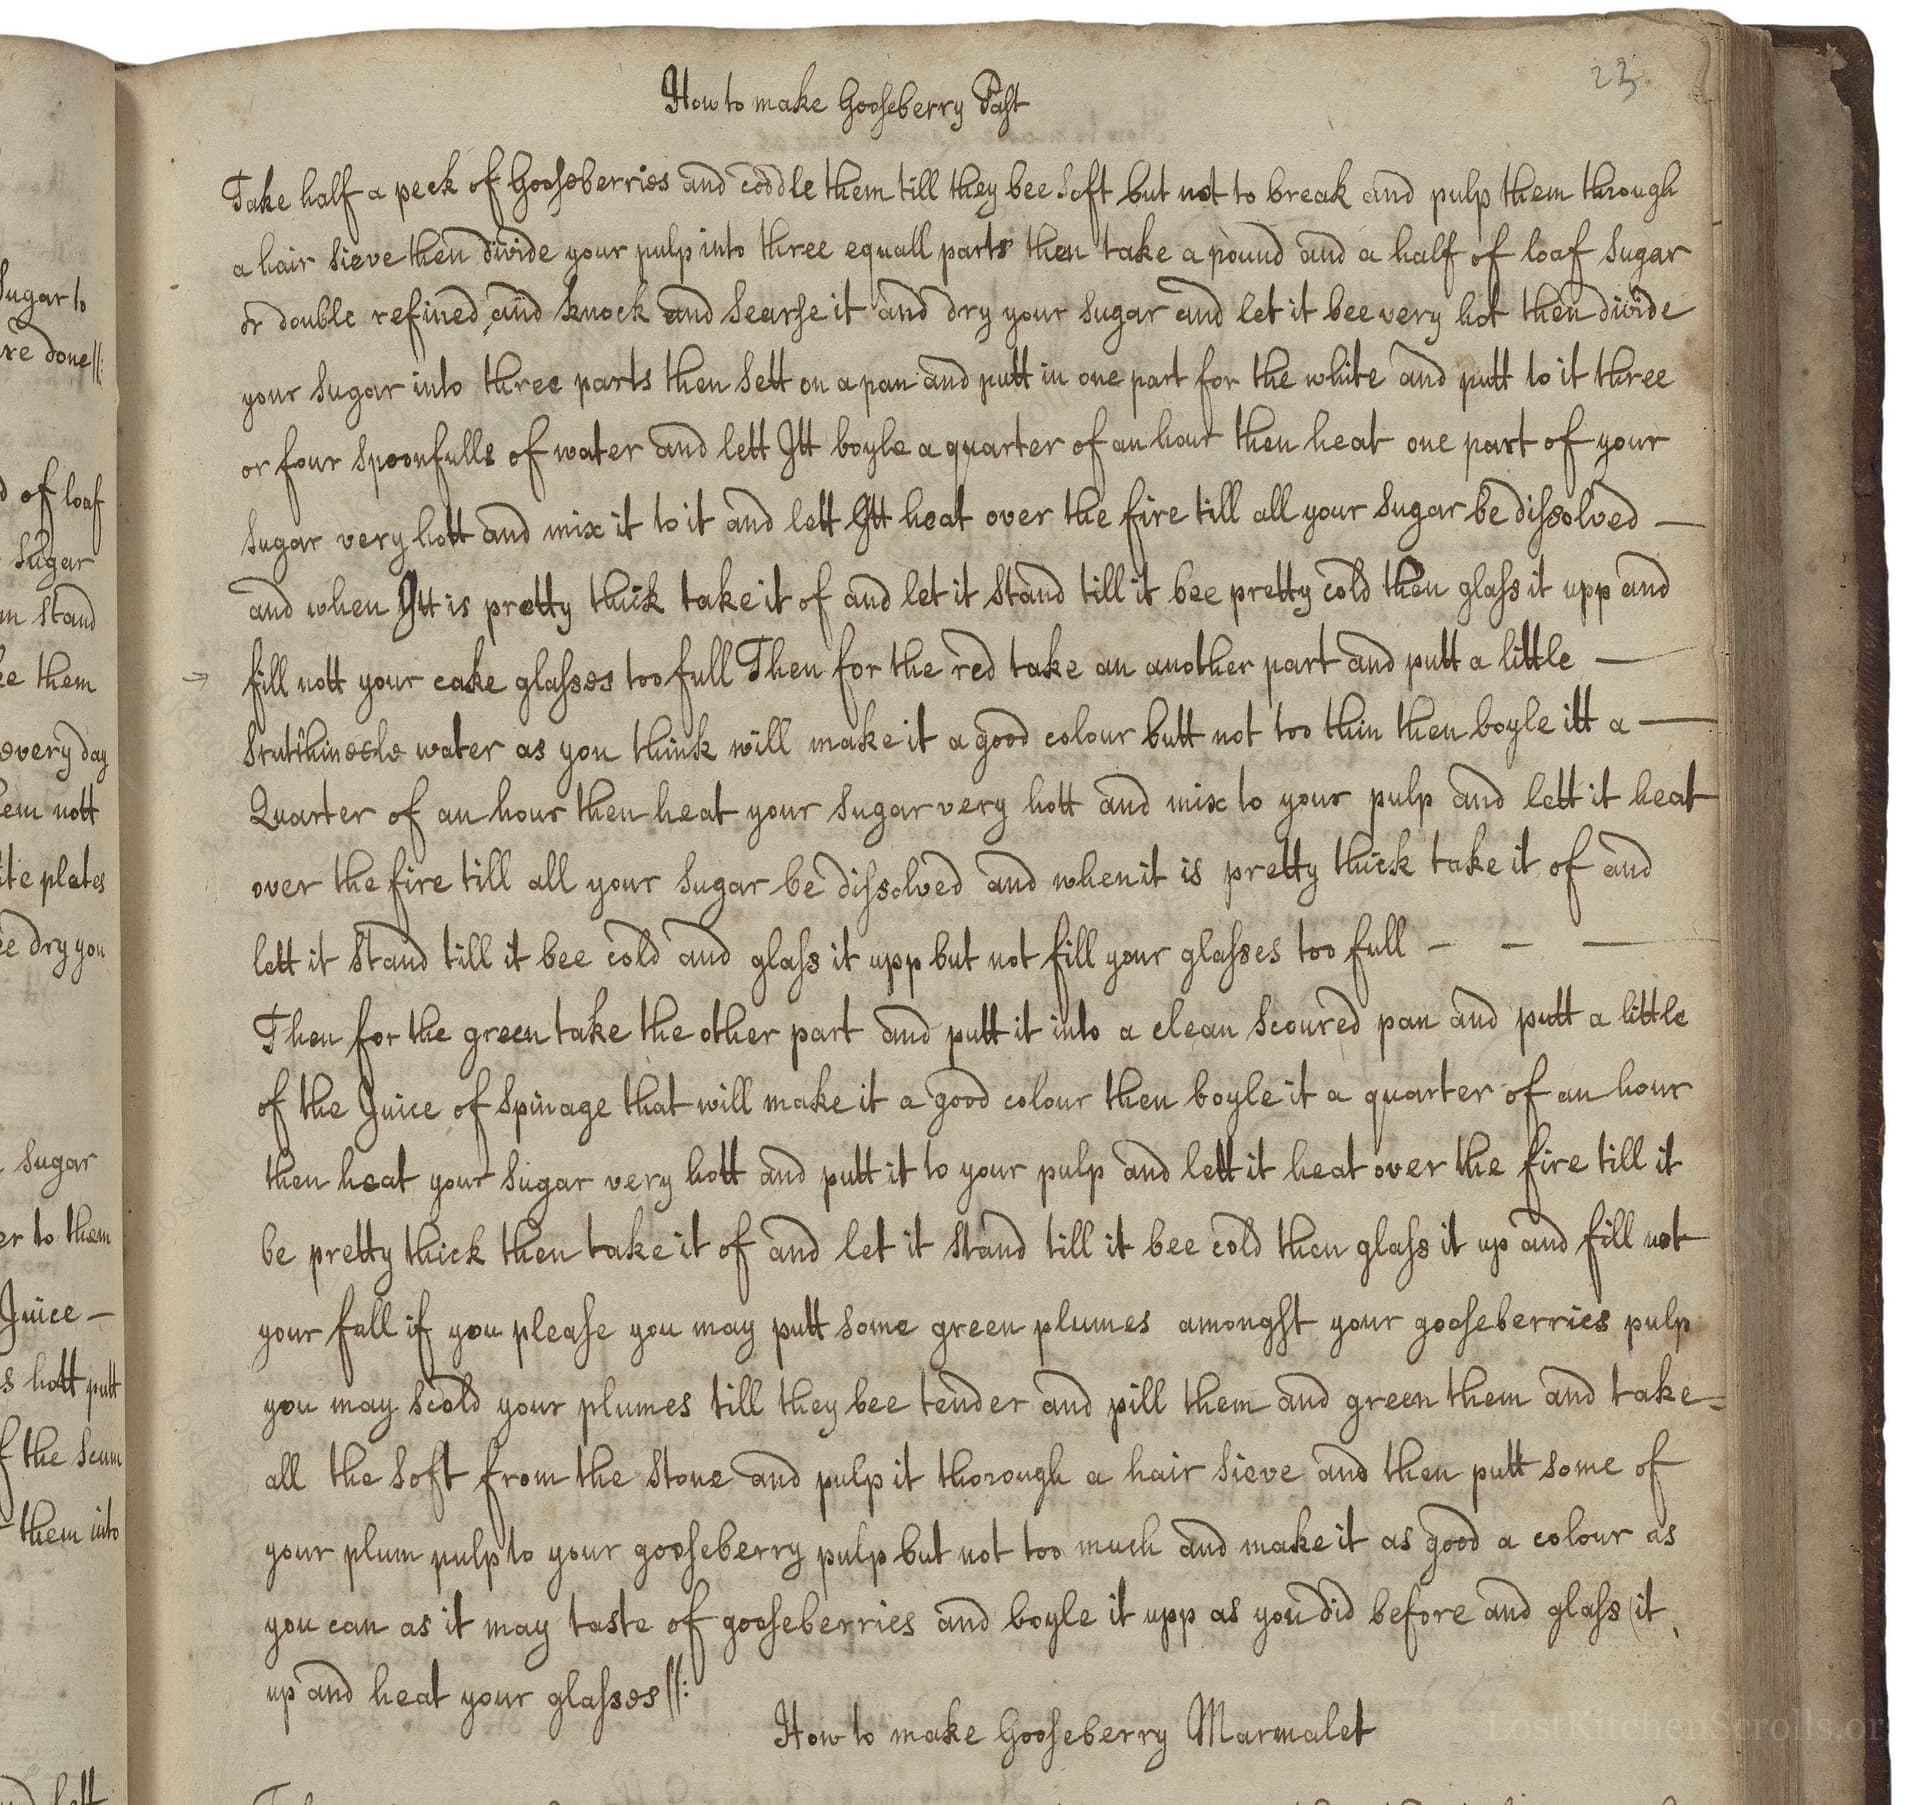 23
How to make Gooseberry Past
Take half a peck of Gooseberries and coddle them till they bee soft but not to break and pulp them through
a hair sieve then divide your pulp into three equall parts then take a pound and a half of loaf sugar
or double refined and knock and searse it and dry your sugar and let it bee very hot then divide
your sugar into three parts then sett on a pan and putt in one part for the white and putt to it three
or four spoonfulls of water and lett Itt boyle a quarter of an hour then heat one part of your
sugar very hott and mix it to it and lett Itt heat over the fire till all your sugar be dissolved —
and when Itt is pretty thick take it of and let it stand till it bee pretty cold then glass it upp and
fill nott your cake glasses too full Then for the red take an another part and putt a little —
water as you think will make it a good colour butt not too thin then boyle itt a —
Quarter of an hour then heat your sugar very hott and mix to your pulp and lett it heat
over the fire till all your sugar be dissolved and when it is pretty thick take it of and
lett it stand till it bee cold and glass it upp but not fill your glasses too full — — —
Then for the green take the other part and putt it into a clean scoured pan and putt a little
of the Juice of spinage that will make it a good colour then boyle it a quarter of an hour
then heat your sugar very hott and putt it to your pulp and lett it heat over the fire till it
be pretty thick then take it of and let it stand till it bee cold then glass it up and fill not
your full if you please you may putt some green plumes amongst your gooseberries pulp
you may scold your plumes till they bee tender and pill them and green them and take
all the soft from the stone and pulp it thorough a hair sieve and then putt some of
your plum pulp to your gooseberry pulp but not too much and make it as good a colour as
you can as it may taste of gooseberries and boyle it upp as you did before and glass it
up and heat your glasses //:
How to make Gooseberry Marmalet
sugar to
re done //:
of loaf
sugar
stand
them
every day
nott
plates
dry you
sugar
to them
Juice —
hott putt
the scum
them into